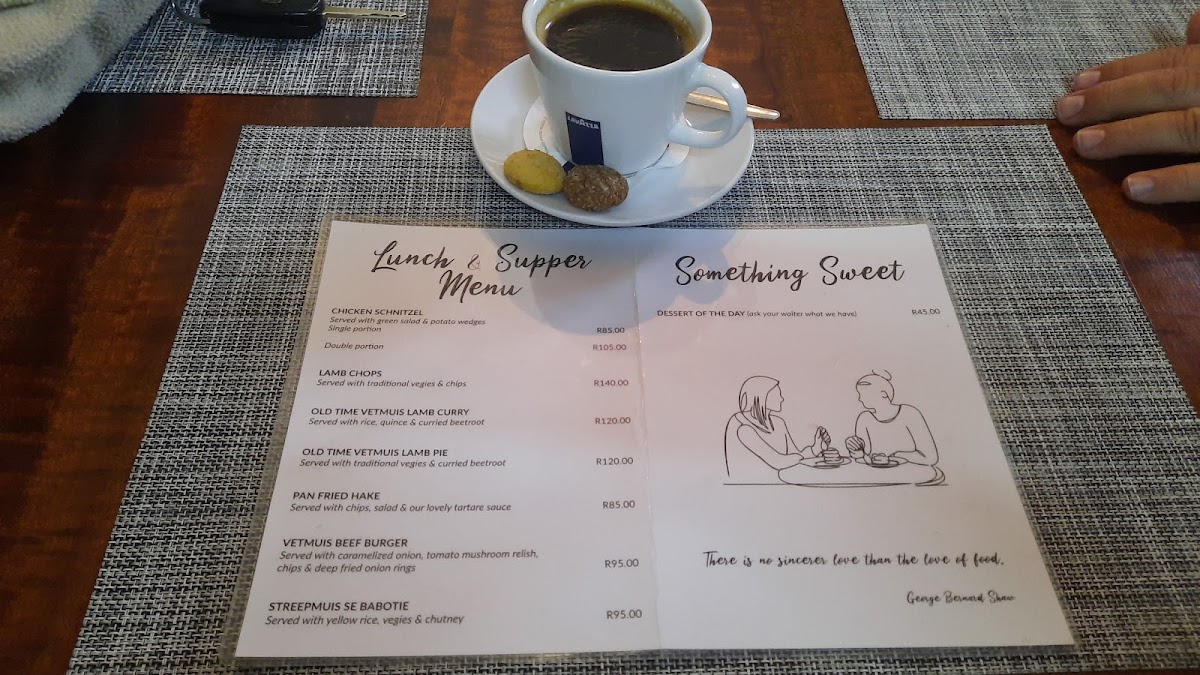 LAVAZZA
Lunch & Supper
Menu
CHICKEN SCHNITZEL
Served with green salad & potato wedges
Single portion R85.00
Double portion R105.00
LAMB CHOPS
Served with traditional vegies & chips R140.00
OLD TIME VETMUIS LAMB CURRY
Served with rice, quince & curried beetroot R120.00
OLD TIME VETMUIS LAMB PIE
Served with traditional vegies & curried beetroot R120.00
PAN FRIED HAKE
Served with chips, salad & our lovely tartare sauce R85.00
VETMUIS BEEF BURGER
Served with caramelized onion, tomato mushroom relish,
chips & deep fried onion rings R95.00
STREEPMUIS SE BABOTIE
Served with yellow rice, vegies & chutney R95.00
Something Sweet
DESSERT OF THE DAY (ask your waiter what we have) R45.00
There is no sincerer love than the love of food.
George Bernard Shaw